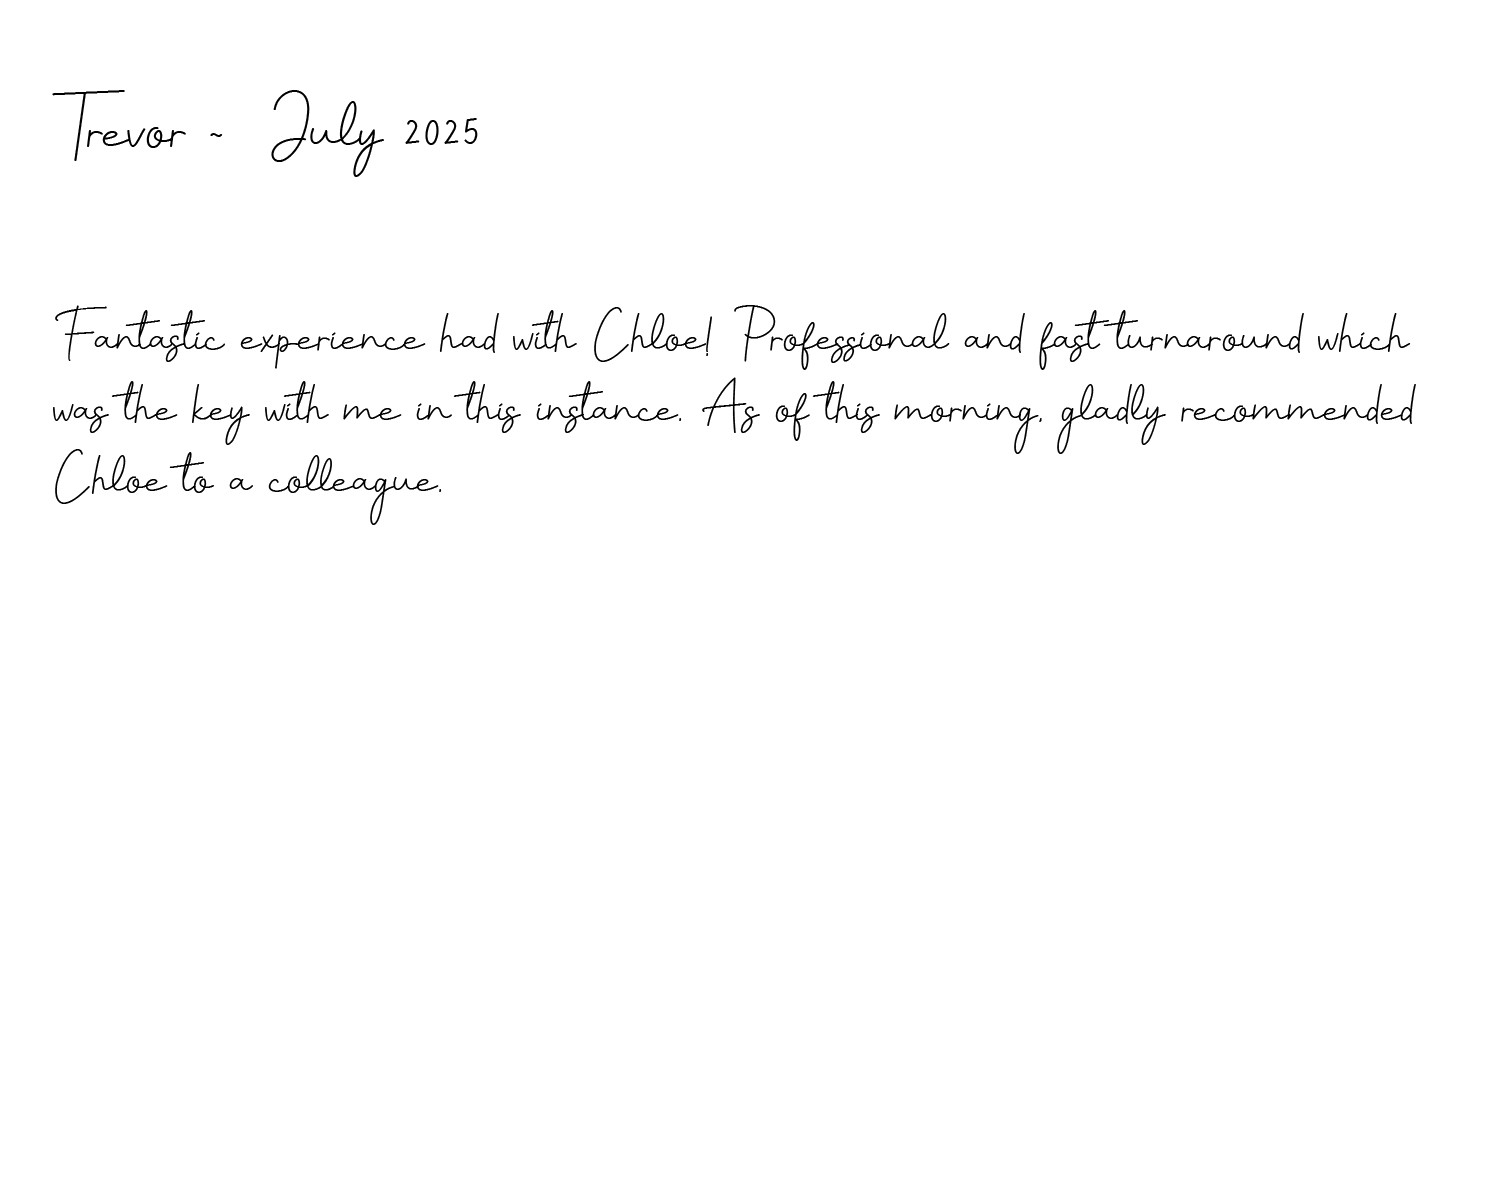 Trevor ~ July 2025
Fantastic experience had with Chloe! Professional and fast turnaround which
was the key with me in this instance. As of this morning, gladly recommended
Chloe to a colleague.